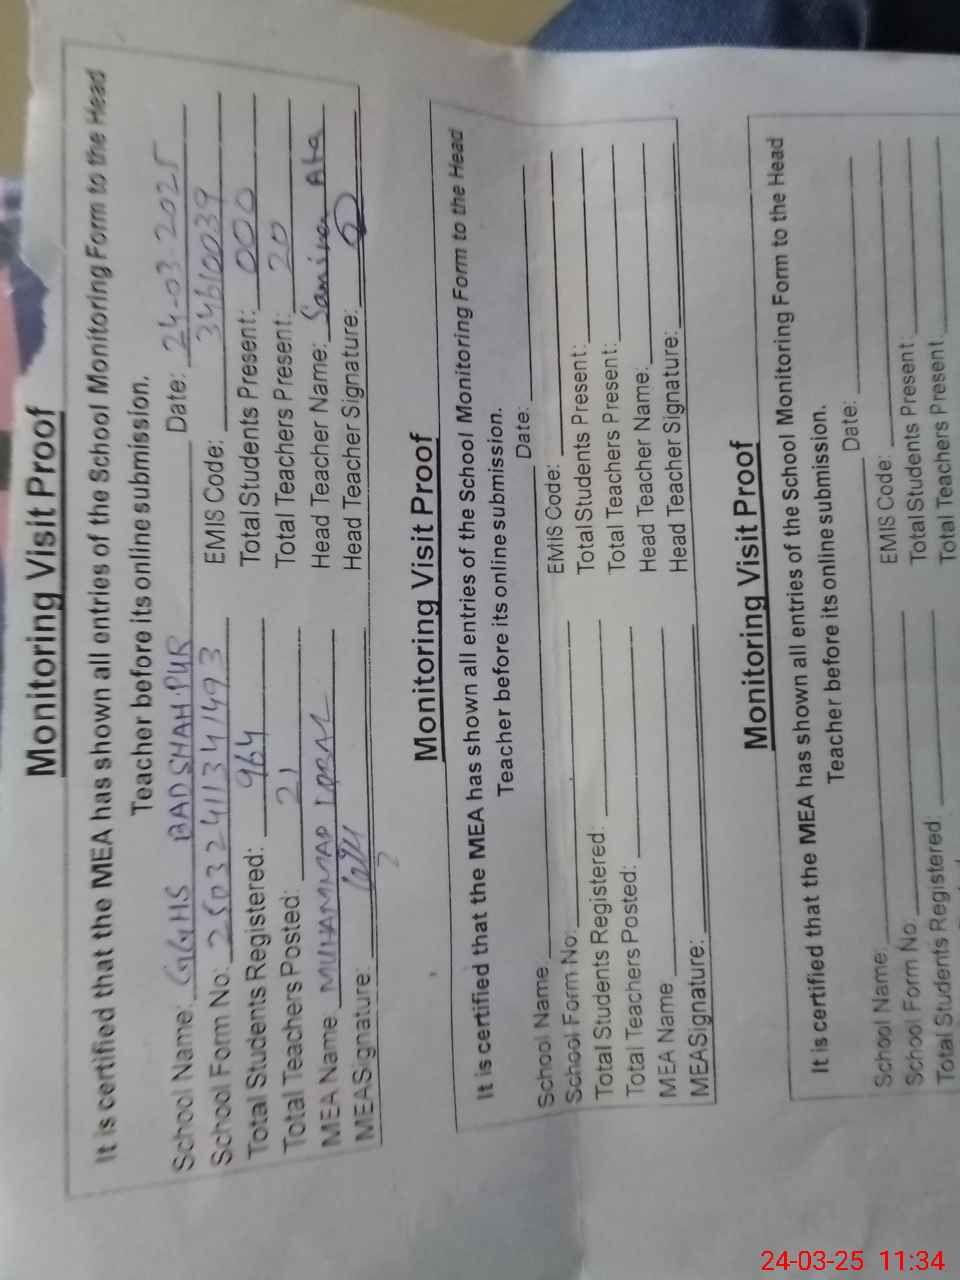 Monitoring Visit Proof
It is certified that the MEA has shown all entries of the School Monitoring Form to the Head
Teacher before its online submission.
School Name: GGHS BADSHAH PUR Date: 24-03-2025
School Form No: 25032411341493 EMIS Code: 34610039
Total Students Registered: 964 Total Students Present: 000
Total Teachers Posted: 21 Total Teachers Present: 20
MEA Name MUHAMMAD Head Teacher Name: Samina Ata
MEASignature: Head Teacher Signature:
Monitoring Visit Proof
It is certified that the MEA has shown all entries of the School Monitoring Form to the Head
Teacher before its online submission.
School Name: Date:
School Form No: EMIS Code:
Total Students Registered: Total Students Present:
Total Teachers Posted: Total Teachers Present:
MEA Name Head Teacher Name:
MEASignature: Head Teacher Signature:
Monitoring Visit Proof
It is certified that the MEA has shown all entries of the School Monitoring Form to the Head
Teacher before its online submission.
School Name: Date:
School Form No. EMIS Code:
Total Students Registered: Total Students Present:
Total Teachers Present
24-03-25 11:34